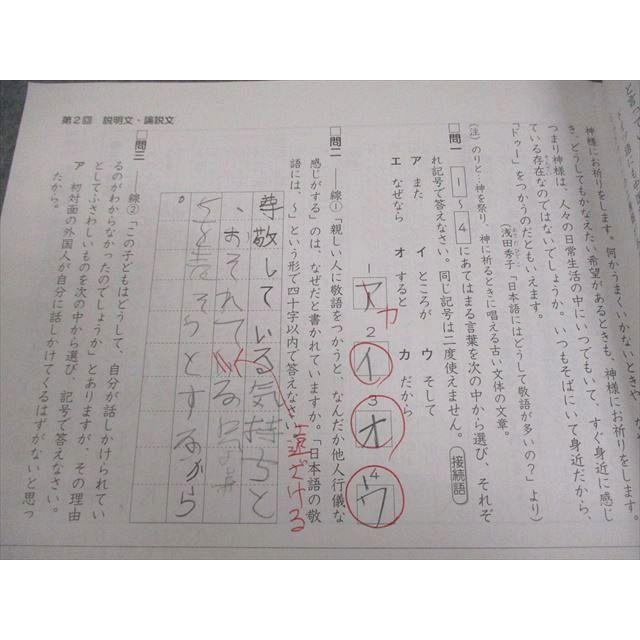 神様にお祈りをします。何かうまくいかないときや、
き、どうしてもかなえたい希望があるときも、神様にお祈りをします。
つまり神様は、人々の日常生活の中にいつでもいて、すぐ身近に感じ
ている存在なのではないでしょうか。いつもそばにいて身近だから、
「ドゥー」をつかうのだともいえます。
（浅田秀子「日本語にはどうして敬語が多いの？」より）
（注）のりと…神を祭り、神に祈るときに唱える古い文体の文章。
□問一 1～4にあてはまる言葉を次の中から選び、それぞ
れ記号で答えなさい。同じ記号は二度使えません。 接続語
ア また イ ところが ウ そして
エ なぜなら オ すると カ だから
1 ア カ
2 イ
3 オ
4 ウ
□問二 ――線①「親しい人に敬語をつかうと、なんだか他人行儀な
感じがする」のは、なぜだと書かれていますか。「日本語の敬
語には、～」という形で四十字以内で答えなさい。
遠ざける
尊敬している気持ちと
、おそれて
うとするから
。
□問三 ――線②「この子どもはどうして、自分が話しかけられてい
るのがわからなかったのでしょうか」とありますが、その理由
としてふさわしいものを次の中から選び、記号で答えなさい。
ア 初対面の外国人が自分に話しかけてくるはずがないと思っ
たから。
第2回 説明文・論説文